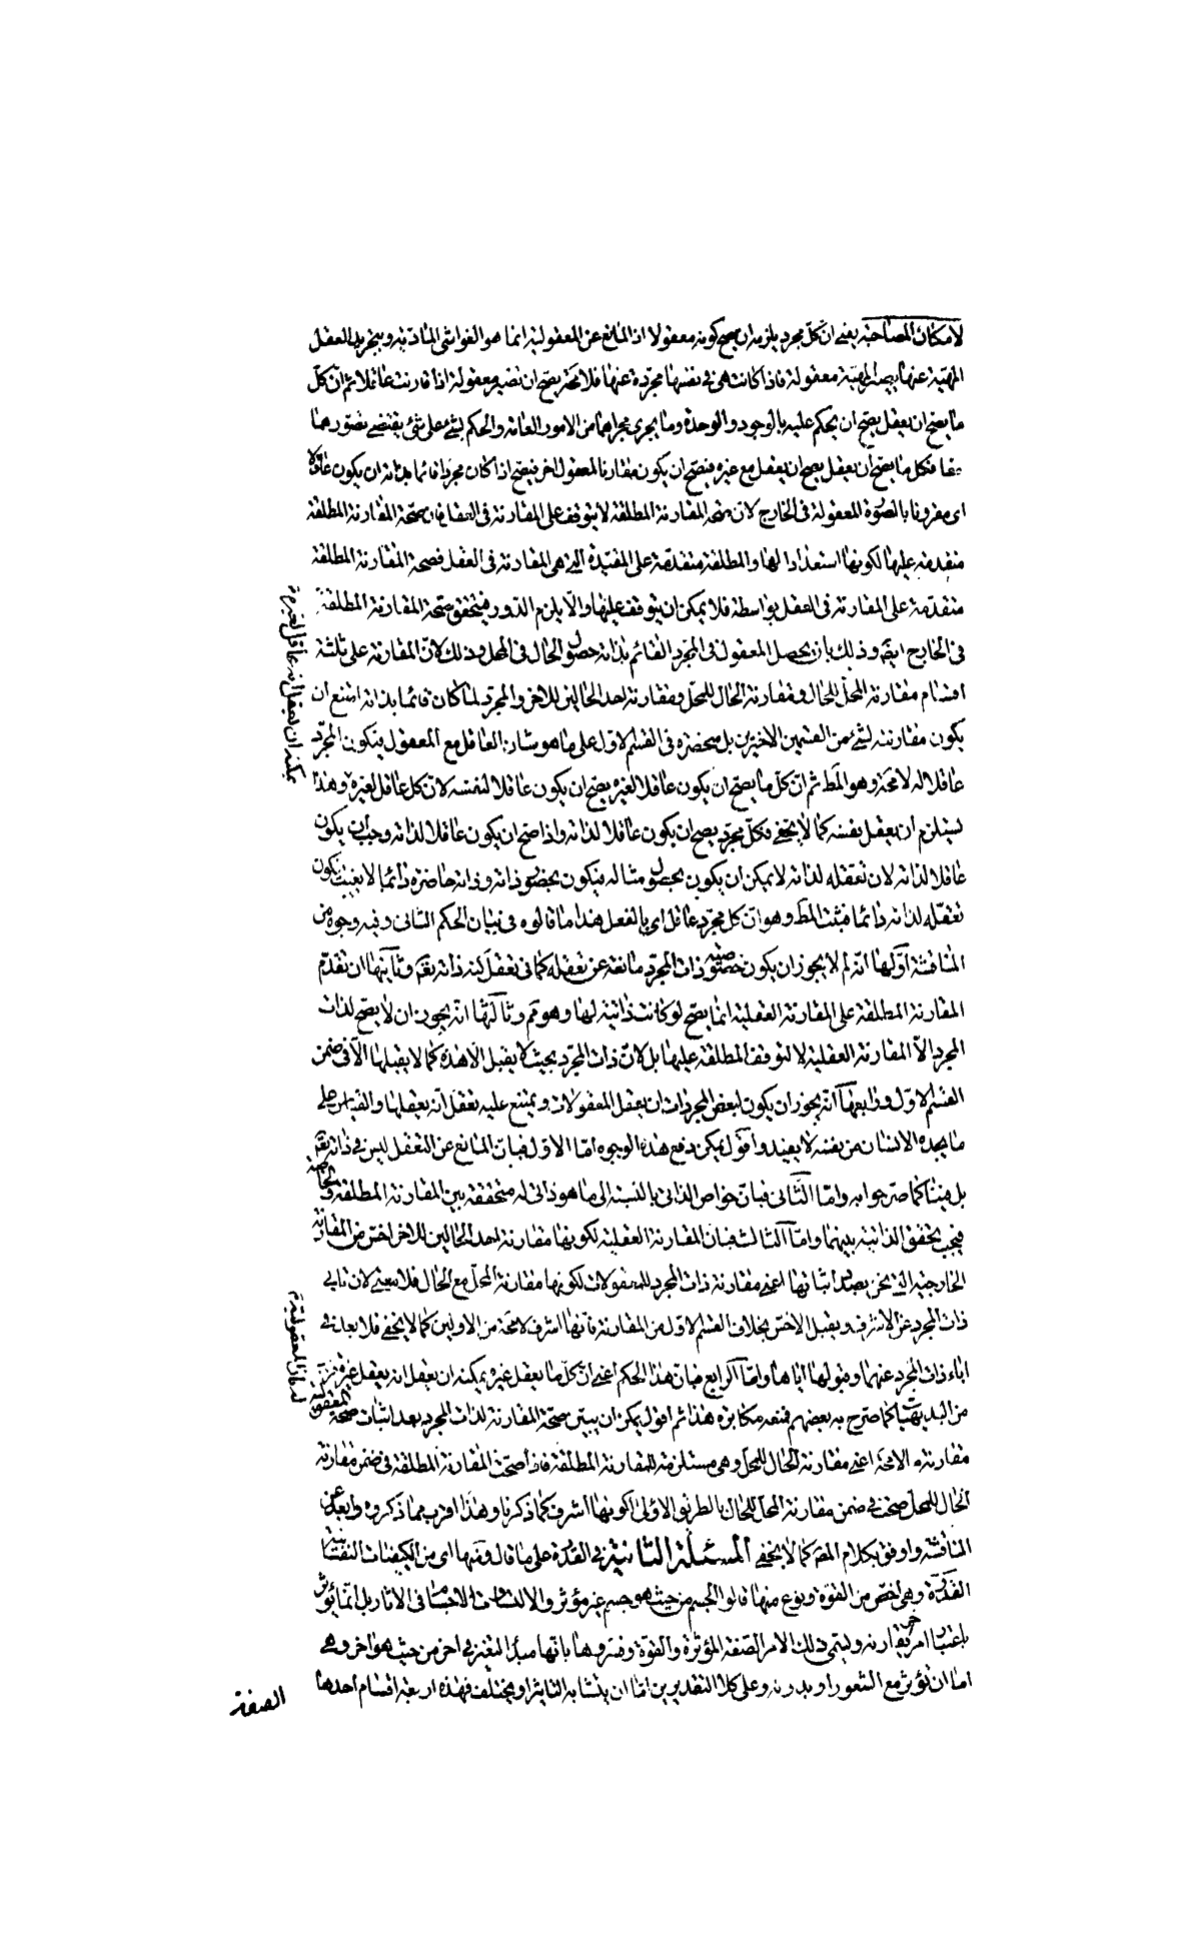 لامكان المصاحبة يعنى ان كلّ مجرد يلزمه ان يصح كونه معقولا اذ المانع عن المعقولية انما هو الغواشى المادّية وبتجريد العقل
المهيّة عنها يصير المهيّة معقولة فاذا كانت هى فى نفسها مجرّدة عنها فلا محة يصحّ ان تصير معقولة اذا قارنت عاقلا ثمّ انّ كلّ
ما يصحّ ان يعقل يصحّ ان يحكم عليه بالوجود والوحدة وما يجرى مجراهما من الامور العامة والحكم بشئ على شئ يقتضى تصوّرهما
معا فكل ما يصحّ ان يعقل يصح ان يعقل مع غيره فيصحّ ان يكون مقارنا لمعقول اخر فيصح اذا كان مجرّدا قائما بذاته ان يكون عاقلا
اى مقرونا بالصّورة المعقولة فى الخارج لانّ صحة المقارنة المطلقة لا يتوقف على المقارنة فى العقل فان صحّة المقارنة المطلقة
متقدمة عليها لكونها استعدادا لها والمطلقة متقدّمة على المقيّدة التى هى المقارنة فى العقل فصحة المقارنة المطلقة
متقدّمة على المقارنة فى العقل بواسطة فلا يمكن ان يتوقف عليها والّا يلزم الدّور فيتحقق صحّة المقارنة المطلقة
فى الخارج ايضه وذلك بان يحصل المعقول فى المجرّد القائم بذاته حصول الحال فى المحل وذلك لانّ المقارنة على ثلثة
اقسام مقارنة المحلّ للحال ومقارنة الحال للمحلّ ومقارنة احد الحالين للاخر والمجرّد لما كان قائما بذاته امتنع ان
يكون مقارنته لشئ من القسمين الاخيرين بل منحصرة فى القسم الاول على ما هو شان العاقل مع المعقول فيكون المجرّد
عاقلا له لا محة وهو المط ثم انّ كلّ ما يصحّ ان يكون عاقلا لغيره يصحّ ان يكون عاقلا لنفسه لانّ كل عاقل لغيره وهذا
يستلزم ان يعقل نفسه كما لا يخفى فكلّ مجرّد يصح ان يكون عاقلا لذاته واذا صحّ ان يكون عاقلا لذاته وجب ان يكون
عاقلا لذاته لان تعقله لذاته لا يمكن ان يكون بحصول مثاله فيكون بحضور ذاته وذاته حاضرة دائما لا يغيب فيكون
تعقّله لذاته دائما فثبت المط وهو انّ كل مجرّد عاقل اى بالفعل هذا ما قالوه فى بيان الحكم الثانى وفيه وجوه من
المناقشة اوّلها انّه لم لا يجوز ان يكون خصوصية ذات المجرّد مانعة عن تعقله كما فى تعقّل كنه ذاته تعم وثانيها ان تقدّم
المقارنة المطلقة على المقارنة العقلية انما يصحّ لو كانت ذاتية لها وهو مم وثالثها انّه يجوز ان لا يصحّ لذات
المجرد الّا المقارنة العقلية لا لتوقف المطلقة عليها بل لانّ ذات المجرّد بحيث لا يقبل الّا هذه كما لا يقبلها الّا فى ضمن
القسم الاوّل ورابعها انّه يجوز ان يكون لبعض المجرّدات ان يعقل المعقولات ويمتنع عليه تعقل انّه يعقلها والقياس على
ما يجده الانسان من نفسه لا يفيد واقول يمكن دفع هذه الوجوه امّا الاوّل فبانّ المانع عن التعقّل ليس فى ذاته تعم
بل فينا كما صرّحوا به وامّا الثّانى فبانّ خواص الذاتى بالنسبة الى ما هو ذاتى له متحققة بين المقارنة المطلقة والخاصة
فيجب تحقق الذاتية بينهما وامّا الثالث فبان المقارنة العقلية لكونها مقارنة احد الحالين للاخر اخسّ من المقارنة
الخارجية التى نحن بصدد اثباتها اعنى مقارنة ذات المجرد للمعقولات لكونها مقارنة المحلّ مع الحال فلا معنى لان تابى
ذات المجرد عن الاشرف ويقبل الاخسّ بخلاف القسم الاول من المقارنة فانّها اشرف لا محة من الاوليين كما لا يخفى فلا بعد فى
اباء ذات المجرّد عنهما وقبولها ايّاها وامّا الرابع فبان هذا الحكم اعنى انّ كلّ ما يعقل غيره يمكنه ان يعقل انه يعقل غيره قريب
من البديهيات كما صرح به بعضهم فمنعه مكابرة هذا ثم اقول يمكن ان يبيّن صحّة المقارنة لذات المجرد بعد اثبات صحّة المعقولية
مقارنة الحال للمحلّ وهى مستلزمة للمقارنة المطلقة فاذا صحّت المقارنة المطلقة فى ضمن مقارنة
الحال للمحلّ صحّت فى ضمن مقارنة المحلّ للحال بالطريق الاولى لكونها اشرف كما ذكرنا وهذا اقرب مما ذكروه وابعد عن
المناقشة واوفق بكلام المص كما لا يخفى المسئلة الثانية فى القدرة على ما قال ومنها اى من الكيفيات النفسانية
القدرة وهى اخصّ من القوّة ونوع منها قالوا الجسم من حيث هو جسم غير مؤثر والا لتساوت الاجسام فى الاثار بل انّما يؤثر
باعتبار امر يقارنه ويسمّى ذلك الامر الصّفة المؤثرة والقوّة وفسّروها بانّها مبدأ التغيّر فى اخر من حيث هو اخر وهى
اما ان تؤثر مع الشعور او بدونه وعلى كلا التقديرين امّا ان يتشابه التاثير او يختلف فهذه اربعة اقسام احدها
الصفة
يمكنه ان يعقل انه عاقل لغيره